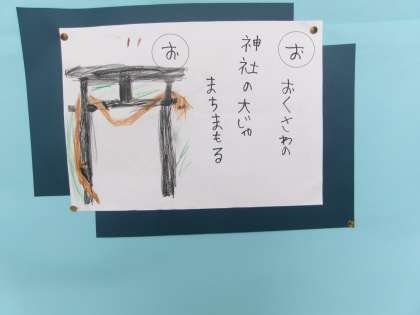 お
おくさわの
神社の大じゃ
まちまもる
お